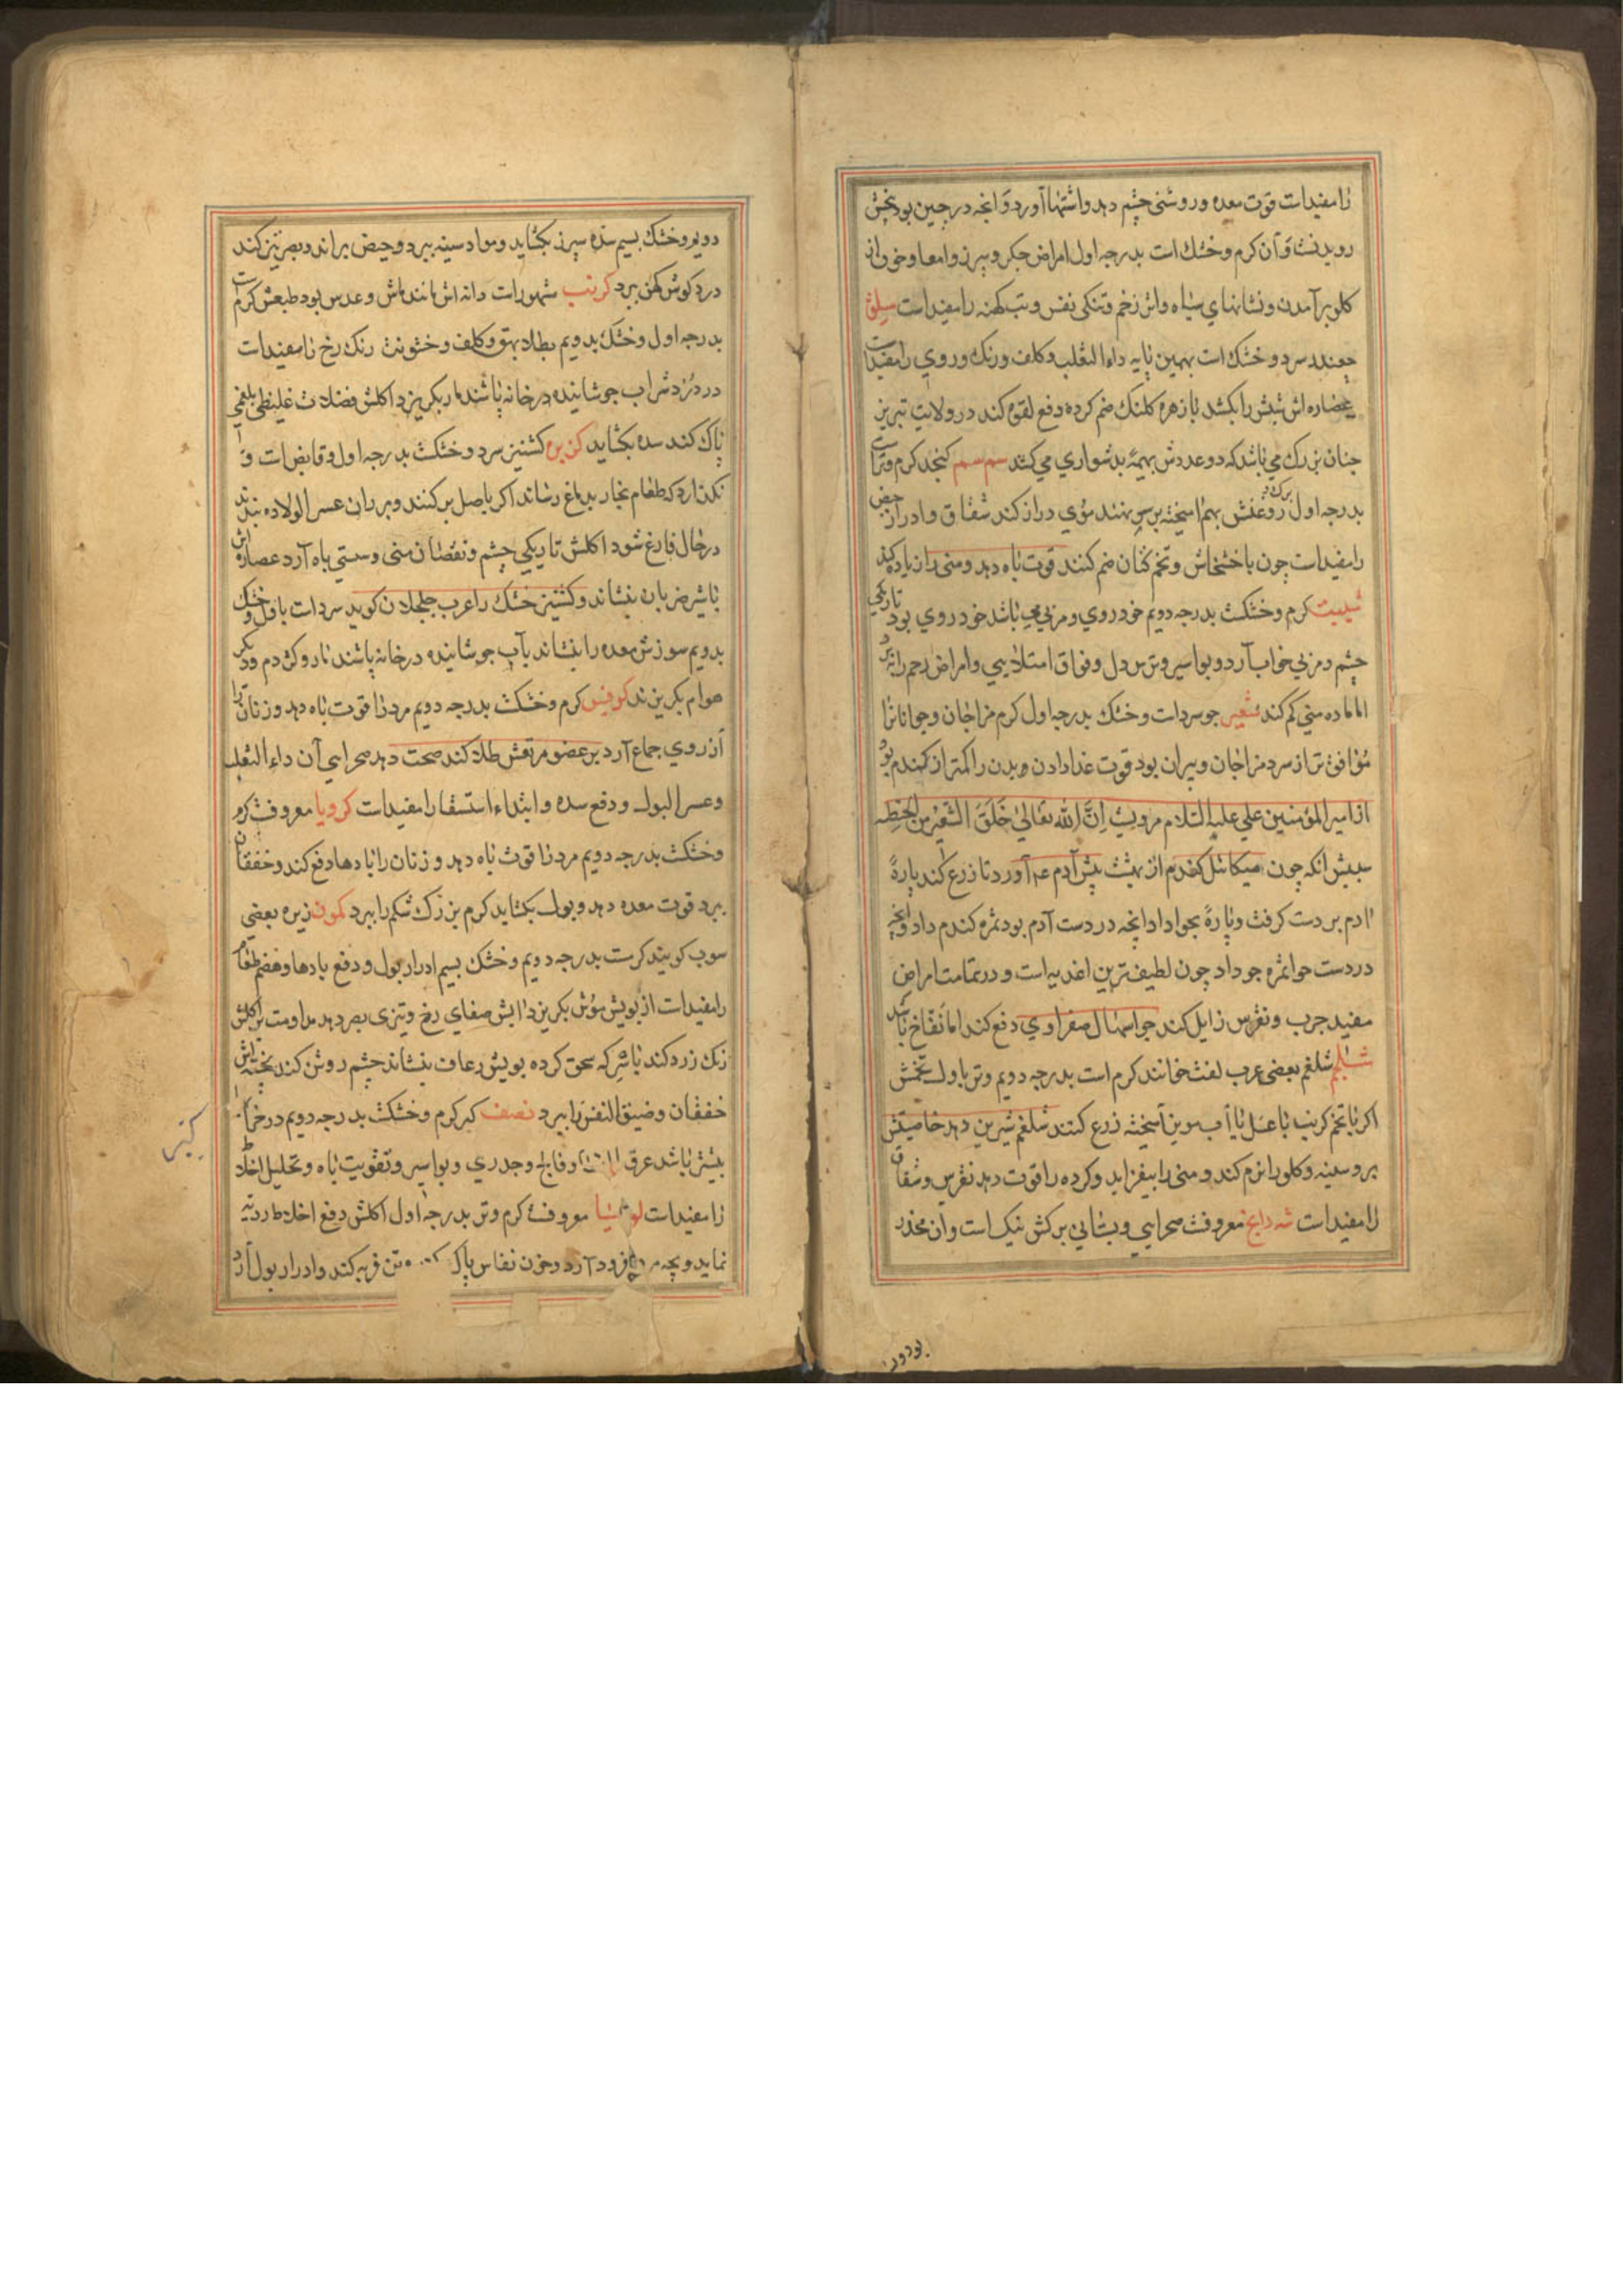 را مفیدات قوت معده وروشنی چشم دهد واشتها آورد وانچه در چین بود بخش
رویدنت وآن کرم وخشك است بدرجه اول امراض جکر وسپرز وامعا وخون از
کلو برآمدن ونشانهای سیاه واثر زخم وتنکی نفس وتب کهنه را مفید است سلق
چغندر سرد وخشك است بهمین پایه داء الثعلب وکلف ورنك وروی را مفید است
عصاره اش شپش را بکشد با زهره کلنك ضم کرده دفع لقوه کند در ولایت تبریز
چنان بزرك می باشد که دو عددش بهیمهٔ بدشواری می کشد سمسم کنجد کرم وتر است
بدرجه اول برك و روغنش بهم امیخته بر سر نهند موی دراز کند شقاق وادرار حیض
را مفیدات چون با خشخاش وتخم کتان ضم کنند قوت باه دهد ومنی را زیاده کند
شبت کرم وخشکست بدرجه دویم خودروی ومزبی می باشد خودروی بود تاریکی
چشم ومزبی خواب آرد وبواسیر وترس دل وفواق امتلایی وامراض رحم را ببرد
اما ماده منی کم کند شعیر جو سردات وخشك بدرجه اول کرم مزاجان وجوانانرا
موافق تر از سرد مزاجان وپیران بود قوت غذا دادن وبدن را کمتر از کندم بود
از امیر المؤمنین علی علیه السلام مرویست اِنَّ الله تعالیٰ خَلَقَ الشَّعیرَ مِنَ الحِنطه
سببش انکه چون میکائل کندم از بهشت پیش آدم عم آورد تا زرع کند پارهٔ
ادم بر دست کرفت وپارهٔ بحوا داد انچه در دست آدم بود ثمره کندم داد وانچه
در دست حوا ثمره جو داد چون لطیف ترین اغذیه است ودر تمامت امراض
مفید جرب ونقرس زایل کند جو اسهال صفراوی دفع کند اما نفاخ باشد
شلجم شلغم بعضی عرب لفت خوانند کرم است بدرجه دویم وتر باول تخمش
اکر با تخم کرنب با عسل یا آب مویز آمیخته زرع کنند شلغم شیرین دهد خاصیتش
بر وسینه وکلو را نرم کند ومنی را بیفزاید وکرده را قوت دهد نقرس وشقاق
را مفید است شه دانج معروفت صحرایی وبستانی برکش نیك است وان مخدر
بود ودر
دویم وخشك بسیم سده سپرز بکشاید ومواد سینه ببرد وحیض براند وبصر تیز کند
درد کوش کهن ببرد کرنب مشهورات دانه اش مانند ماش وعدس بود طبعش کرم است
بدرجه اول وخشك بدویم بطلاء بهق وکلف وخشونت رنك رخ را مفیدات
در دُرد شراب جوشانیده در خانه پاشند مار بکریزد اکلش فضلات غلیظی بلغمی
پاك کند سده بکشاید کزبره کشنیز سرد وخشکست بدرجه اول وقابض است و
نکذارد که طعام بخار بدماغ رساند اکر باصل برکنند وبر ران عسر الولاده بندند
در حال فارغ شود اکلش تاریکی چشم ونقصان منی وسستی باه آرد عصاره اش
با شیر ضربان بنشاند وکشنیز خشك را عرب جلجلان کوید سردات باول وخشك
بدویم سوزش معده را بنشاند بآب جوشانیده در خانه پاشند مار وکژدم ودیکر
هوام بکریزند کرفس کرم وخشکست بدرجه دویم مرد را قوت باه دهد وزنان را
آرزوی جماع آرد بر عضو مرتعش طلا کند صحت دهد صحرایی آن داء الثعلب
وعسر البول ودفع سده وابتداء استسقا را مفیدات کرویا معروفت کرم
وخشکست بدرجه دویم مرد را قوت باه دهد وزنان را بادها دفع کند وخفقان
ببرد قوت معده دهد وبول بکشاید کرم بزرك شکم را ببرد کمون زیره بعضی
سوب کویند کرمست بدرجه دویم وخشك بسیم ادرار بول ودفع بادها وهضم طعام
را مفیدات از بویش موش بکریزد آبش صفای رخ وتیزی بصر دهد مداومت بر اکلش
رنك زرد کند با سرکه سحق کرده بویش رعاف بنشاند چشم روشن کند پخته اش
خفقان وضیق النفس را ببرد نصف کبر کرم وخشکست بدرجه دویم در خرما
بیشتر باشد عرق وفالج وجدری وبواسیر وتقویت باه وتحلیل اخلاط
را مفیدات لوبیا معروفت کرم وتر بدرجه اول اکلش دفع اخلاط ردیه
نماید وبچه فرود آرد وخون نفاس پاك تن فربه کند وادرار بول آرد
کبر